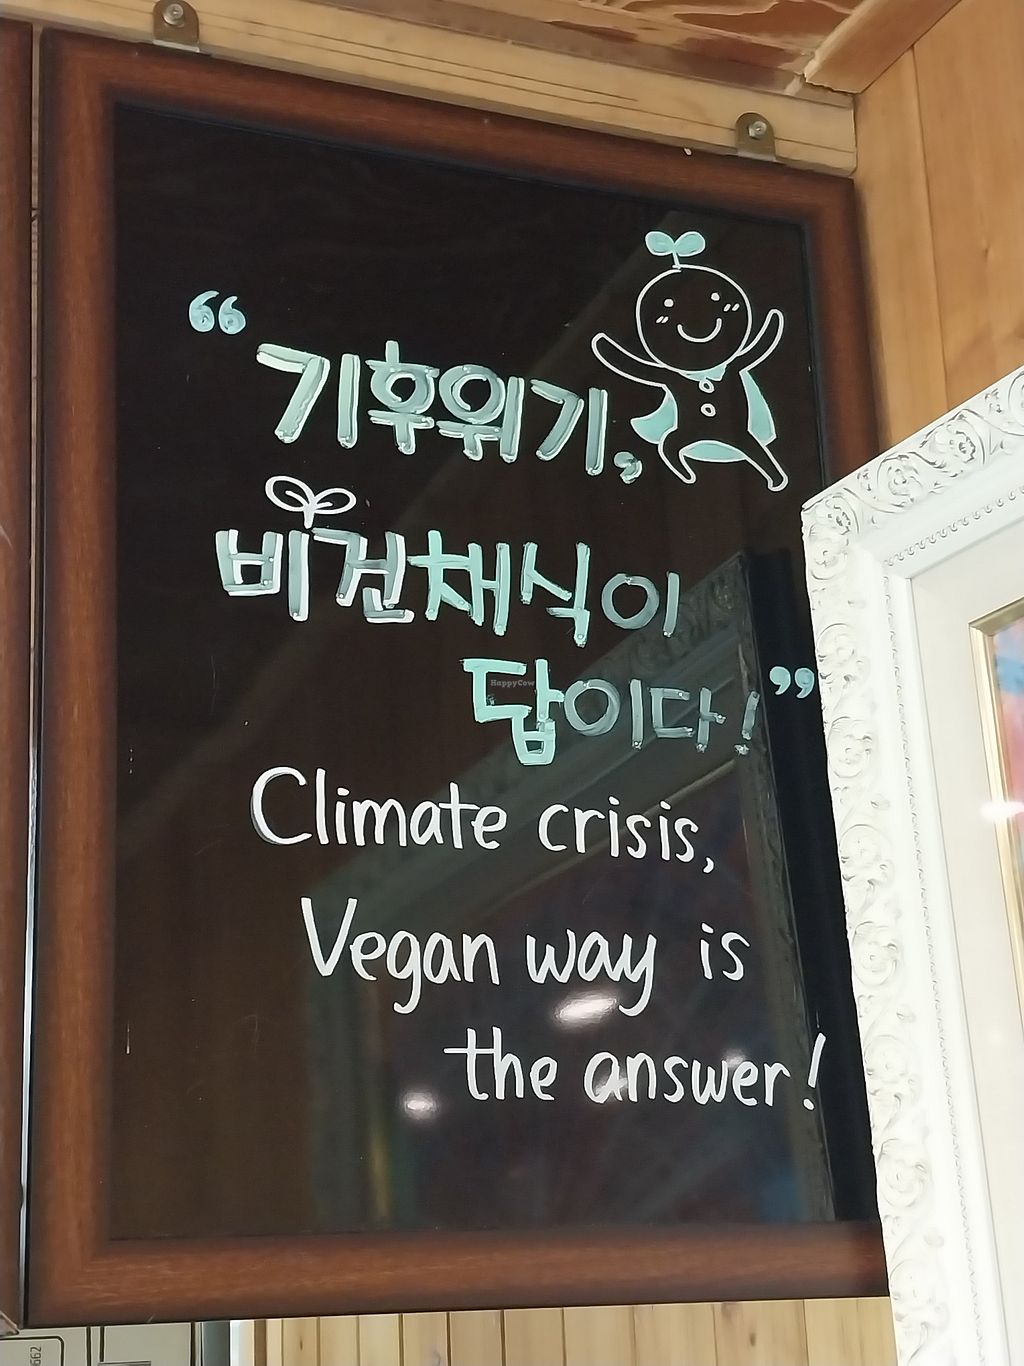 “기후위기,
비건채식이
답이다!”
HappyCow
Climate crisis,
Vegan way is
the answer!
662